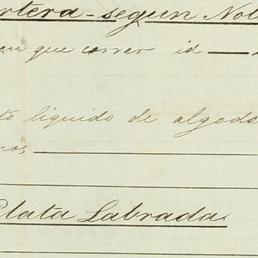 rtera - segun Not
en que correr id
to líquido de algodo
nos
Plata Labrada